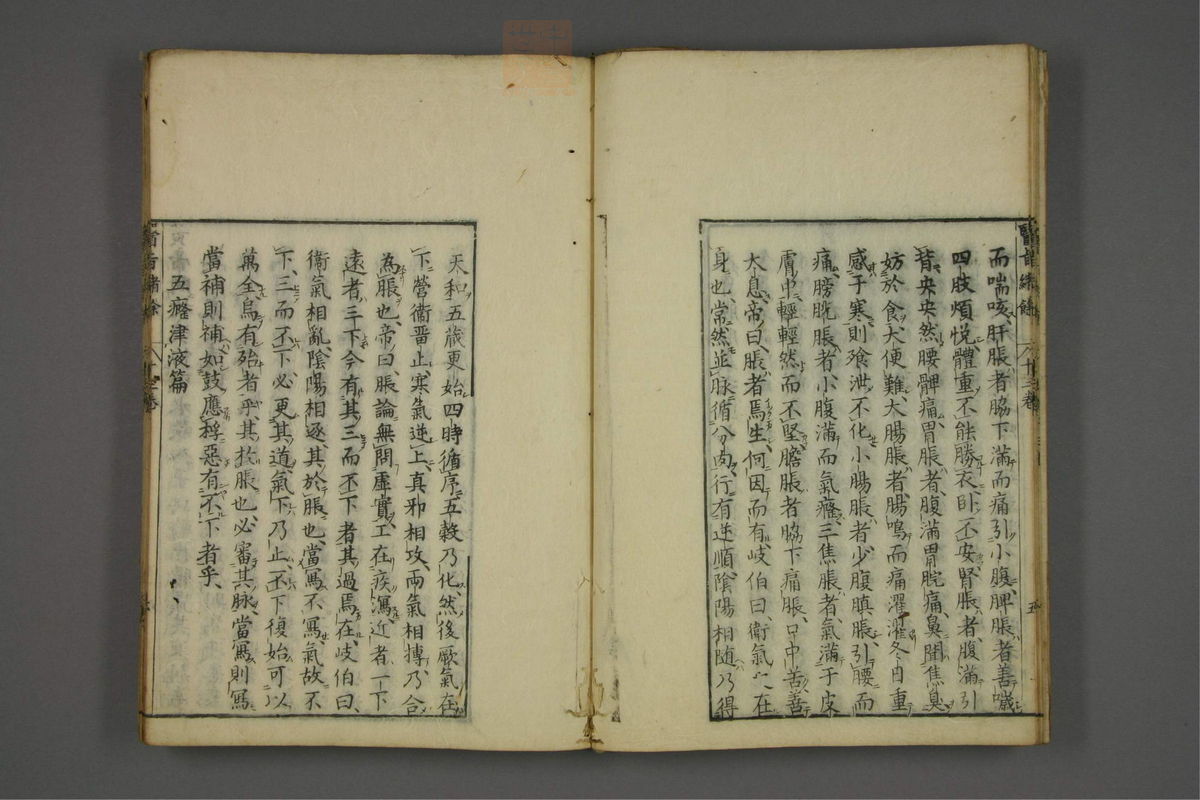 而喘咳肝脹者脇下滿而痛引小腹脾脹者善噦
四肢煩悗體重不能勝衣臥不安腎脹者腹滿引
背央央然腰髀痛胃脹者腹滿胃脘痛鼻聞焦臭
妨於食大便難大腸脹者腸鳴而痛濯濯冬日重
感于寒則飱泄不化小腸脹者少腹䐜脹引腰而
痛膀胱脹者小腹滿而氣癃三焦脹者氣滿于皮
膚中輕輕然而不堅膽脹者脇下痛脹口中苦善
太息帝曰脹者焉生何因而有岐伯曰衛氣之在
身也常然並脉循分肉行有逆順陰陽相随乃得
天和五藏更始四時循序五穀乃化然後厥氣在
下營衛畱止寒氣逆上真邪相攻兩氣相搏乃合
為脹也帝曰脹論無問虛實工在疾瀉近者一下
遠者三下今有其三而不下者其過焉在岐伯曰
衛氣相亂陰陽相逐其於脹也當瀉不瀉氣故不
下三而不下必更其道氣下乃止不下復始可以
萬全烏有殆者乎其於脹也必審其脉當瀉則瀉
當補則補如鼓應桴惡有不下者乎
五癃津液篇